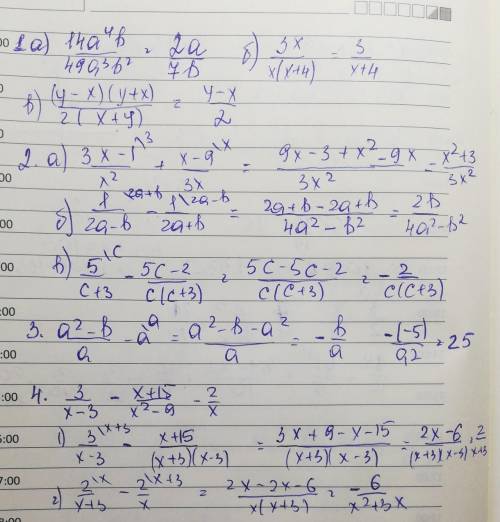 1а) 14a⁴b/49a³b² = 2a/7b б) 3x/x(x+4) = 3/x+4
в) (y-x)(y+x)/2(x+y) = y-x/2
2. а) 3x-1\3/x² + x-9\x/3x = 9x-3+x²-9x/3x² = x²+3/3x²
б) 1\2a+b/2a-b - 1\2a-b/2a+b = 2a+b-2a+b/4a²-b² = 2b/4a²-b²
в) 5\c/c+3 - 5c-2/c(c+3) = 5c-5c-2/c(c+3) = -2/c(c+3)
3. a²-b/a - a\a = a²-b-a²/a = -b/a -(-5)/0,2 = 25
4. 3/x-3 - x+15/x²-9 - 2/x
1) 3\x+3/x-3 - x+15/(x+3)(x-3) = 3x+9-x-15/(x+3)(x-3) = 2x-6/(x+3)(x-3) = 2/x+3
2) 2\x/x+3 - 2\x+3/x = 2x-2x-6/x(x+3) = -6/x²+3x